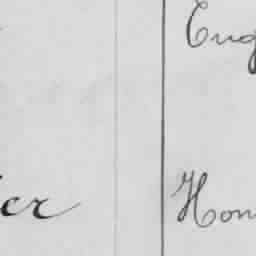 Eug
er Hon